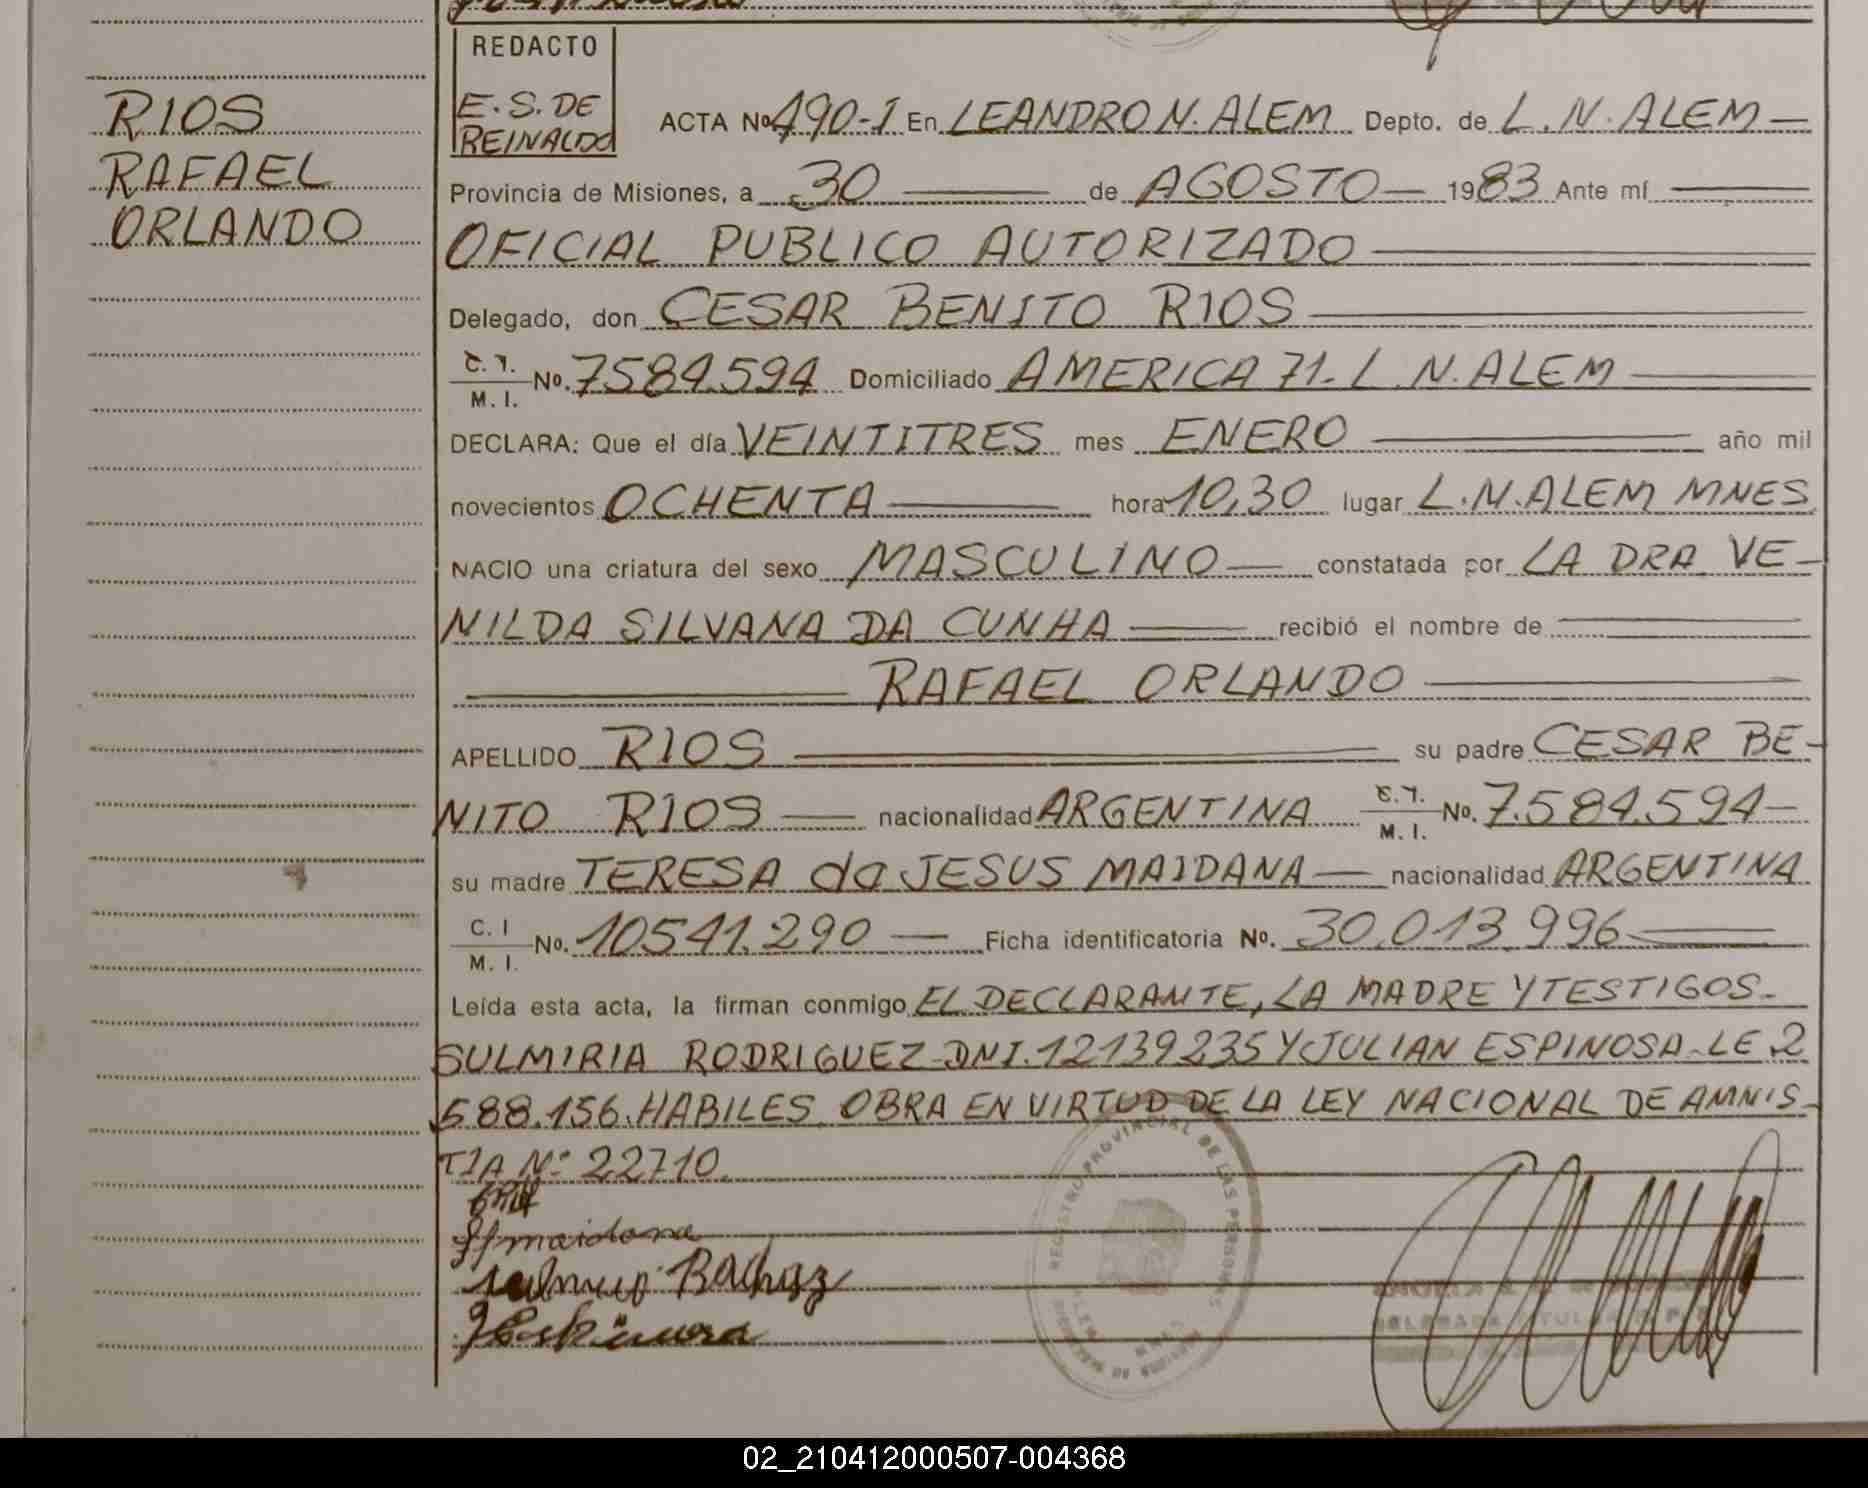 RIOS
RAFAEL
ORLANDO
REDACTO
E. S. DE
REINALDO
ACTA Nº 490-I En LEANDRO N. ALEM Depto. de L. N. ALEM —
Provincia de Misiones, a 30 — de AGOSTO — 1983 Ante mí —
OFICIAL PUBLICO AUTORIZADO —
Delegado, don CESAR BENITO RIOS —
C. I. / M. I. No. 7584.594 Domiciliado AMERICA 71. L. N. ALEM —
DECLARA: Que el día VEINTITRES mes ENERO — año mil
novecientos OCHENTA — hora 10,30 lugar L. N. ALEM MNES
NACIO una criatura del sexo MASCULINO — constatada por LA DRA VE-
NILDA SILVANA DA CUNHA — recibió el nombre de —
— RAFAEL ORLANDO —
APELLIDO RIOS — su padre CESAR BE-
NITO RIOS — nacionalidad ARGENTINA C. I. / M. I. No. 7.584.594 —
su madre TERESA de JESUS MAIDANA — nacionalidad ARGENTINA
C. I / M. I. No. 10541.290 — Ficha identificatoria No. 30.013.996 —
Leída esta acta, la firman conmigo EL DECLARANTE, LA MADRE Y TESTIGOS-
SULMIRIA RODRIGUEZ-DNI. 12139235 Y JULIAN ESPINOSA-LE 2
588.156. HABILES. OBRA EN VIRTUD DE LA LEY NACIONAL DE AMNIS-
TIA Nº 22710.
maidana
REGISTRO PROVINCIAL DE LAS PERSONAS
02_210412000507-004368